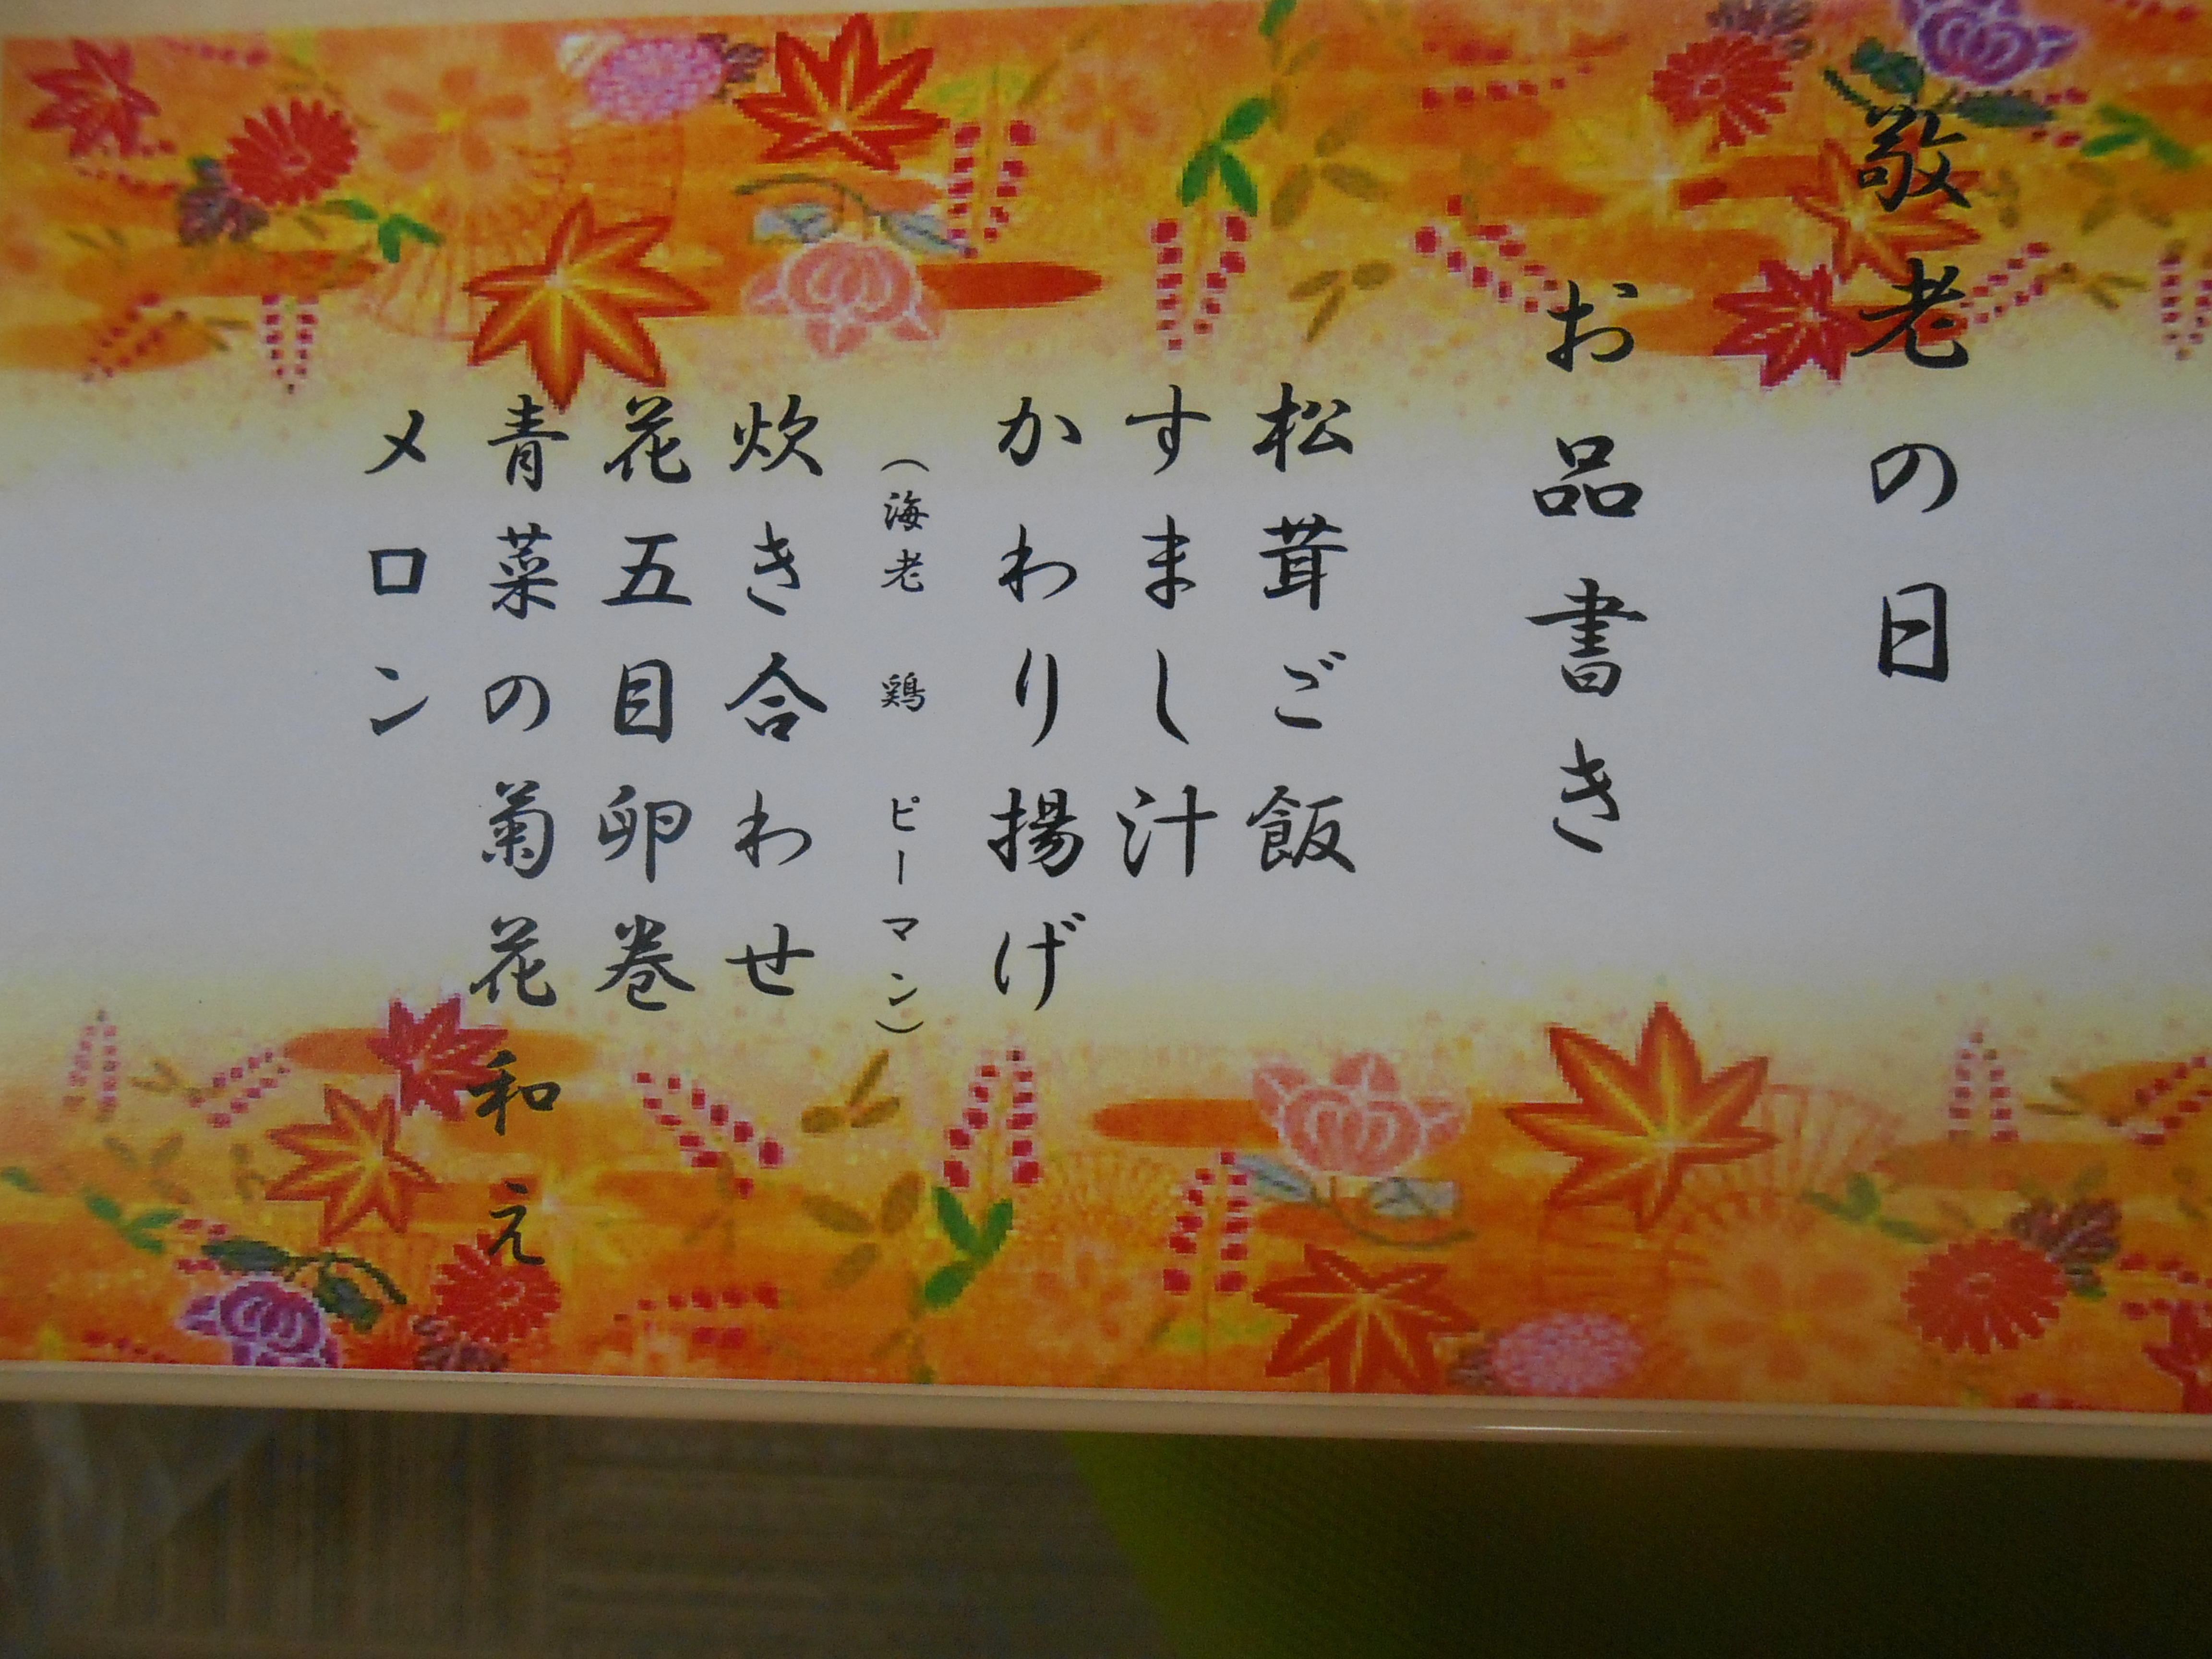 敬老の日
お品書き
松茸ご飯
すまし汁
かわり揚げ
（海老　鶏　ピーマン）
炊き合わせ
花五目卵巻
青菜の菊花和え
メロン